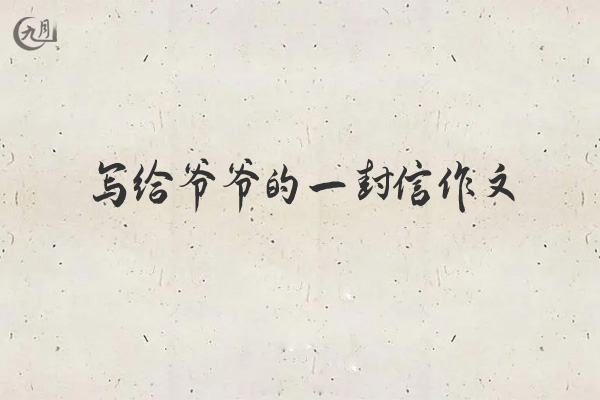 九月
写给爷爷的一封信作文